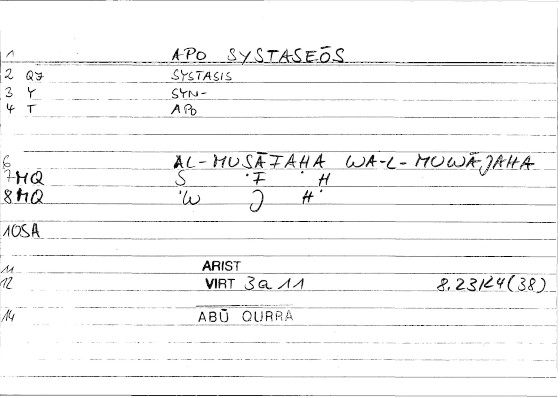 1 APO SYSTASEŌS
2 QJ SYSTASIS
3 Y SYN-
4 T APO
6 AL-MUSĀFAHA WA-L-MUWĀJAHA
7 MQ S F H
8 MQ W J H
10 SA
11 ARIST
12 VIRT 3a11 8.23/24(38)
14 ABŪ QURRA